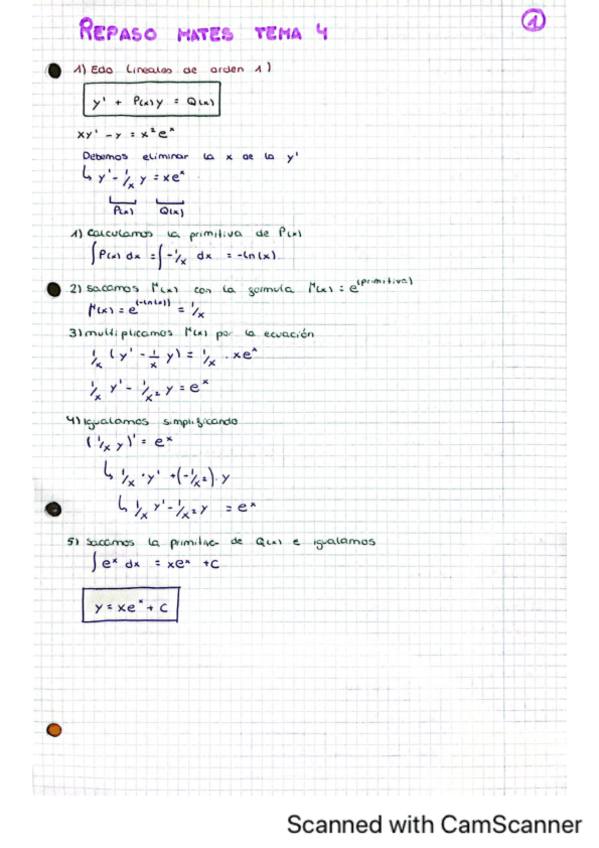 REPASO MATES TEMA 4
1
1) Edo Lineales de orden 1)
y' + P(x)y = Q(x)
xy' - y = x²eˣ
Debemos eliminar la x de la y'
↳ y' - 1/x y = xeˣ
P(x) Q(x)
1) Calculamos la primitiva de P(x)
∫P(x) dx = ∫-1/x dx = -ln(x)
2) Sacamos μ(x) con la formula μ(x) = e^(primitiva)
μ(x) = e^(-ln(x)) = 1/x
3) multiplicamos μ(x) por la ecuación
1/x (y' - 1/x y) = 1/x · xeˣ
1/x y' - 1/x² y = eˣ
4) Igualamos simplificando
(1/x y)' = eˣ
↳ 1/x · y' + (-1/x²) · y
↳ 1/x y' - 1/x² y = eˣ
5) Sacamos la primitiva de Q(x) e igualamos
∫eˣ dx = xeˣ + C
y = xeˣ + C
Scanned with CamScanner